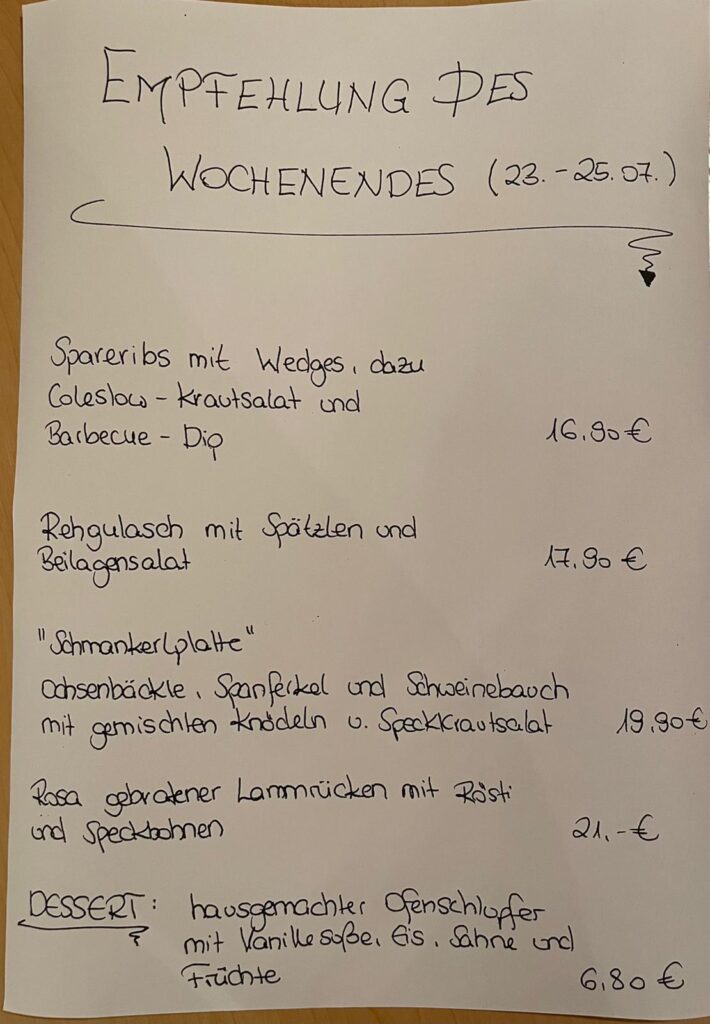 EMPFEHLUNG DES
WOCHENENDES (23.-25.07.)
Spareribs mit Wedges, dazu
Coleslow-Krautsalat und
Barbecue-Dip 16.90€
Rehgulasch mit Spätzlen und
Beilagensalat 17.90 €
"Schmankerlplatte"
Ochsenbäckle, Spanferkel und Schweinebauch
mit gemischten Knödeln u. Speckkrautsalat 19.90€
Rosa gebratener Lammrücken mit Rösti
und Speckbohnen 21.-€
DESSERT: hausgemachter Ofenschlupfer
mit Vanillesoße, Eis, Sahne und
Früchte 6.80 €